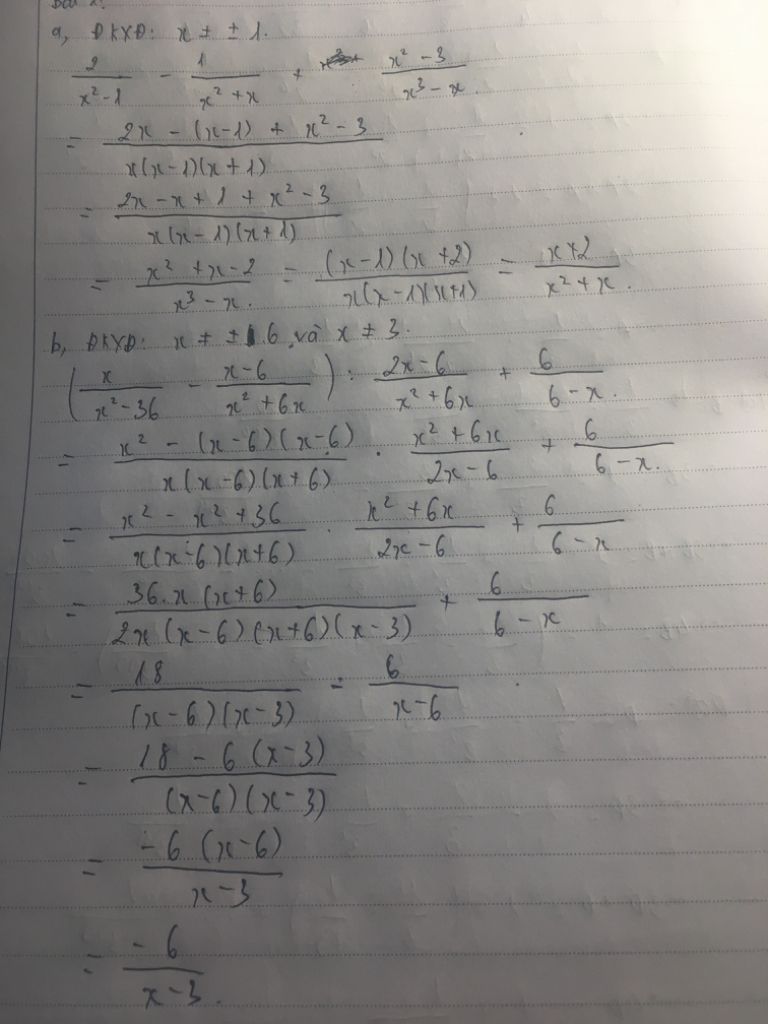 Bài 2:
a, ĐKXĐ: x ≠ ± 1.
2/(x² - 1) - 1/(x² + x) + (x² - 3)/(x³ - x).
= (2x - (x-1) + x² - 3)/(x(x-1)(x+1))
= (2x - x + 1 + x² - 3)/(x(x-1)(x+1))
= (x² + x - 2)/(x³ - x.) = ((x-1)(x+2))/(x(x-1)(x+1)) = (x+2)/(x² + x.)
b, ĐKXĐ: x ≠ ± 6 và x ≠ 3.
(x/(x² - 36) - (x-6)/(x² + 6x)) : (2x-6)/(x² + 6x) + 6/(6 - x.)
= (x² - (x-6)(x-6))/(x(x-6)(x+6)) . (x² + 6x)/(2x-6) + 6/(6 - x.)
= (x² - x² + 36)/(x(x-6)(x+6)) . (x² + 6x)/(2x-6) + 6/(6 - x)
= (36.x(x+6))/(2x(x-6)(x+6)(x-3)) + 6/(6 - x)
= 18/((x-6)(x-3)) - 6/(x-6)
= (18 - 6(x-3))/((x-6)(x-3))
= (-6(x-6))/(x-3)
= (-6)/(x-3.)